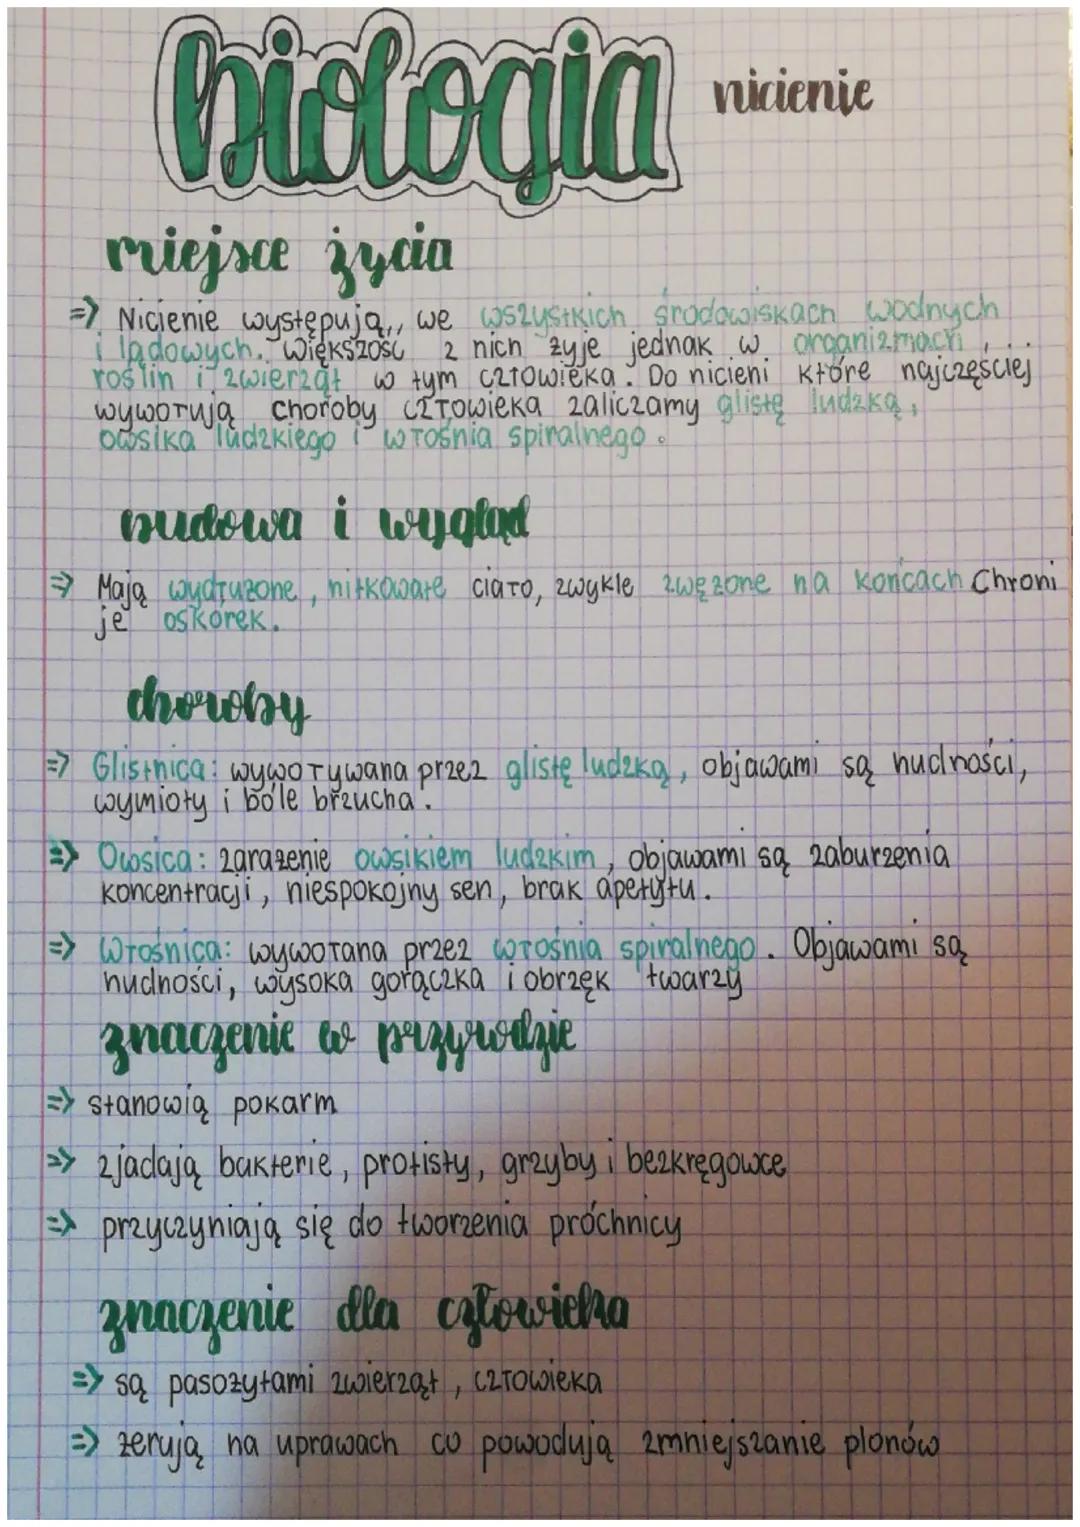 biologia
nicienie
miejsce życia
=> Nicienie występują,, we wszystkich środowiskach wodnych
i lądowych. Większość z nich żyje jednak w organizmach
roślin i zwierząt w tym człowieka. Do nicieni które najczęściej
wywołują choroby człowieka zaliczamy glistę ludzką,
owsika ludzkiego i włośnia spiralnego.
budowa i wygląd
=> Mają wydłużone, nitkowate ciało, zwykle zwężone na końcach Chroni
je oskórek.
choroby
=> Glistnica: wywoływana przez glistę ludzką, objawami są nudności,
wymioty i bóle brzucha.
=> Owsica: zarażenie owsikiem ludzkim, objawami są zaburzenia
koncentracji, niespokojny sen, brak apetytu.
=> Włośnica: wywołana przez włośnia spiralnego. Objawami są
nudności, wysoka gorączka i obrzęk twarzy
znaczenie w przyrodzie
=> stanowią pokarm
=> zjadają bakterie, protisty, grzyby i bezkręgowce
=> przyczyniają się do tworzenia próchnicy
znaczenie dla człowieka
=> są pasożytami zwierząt, człowieka
=> żerują na uprawach co powodują zmniejszanie plonów